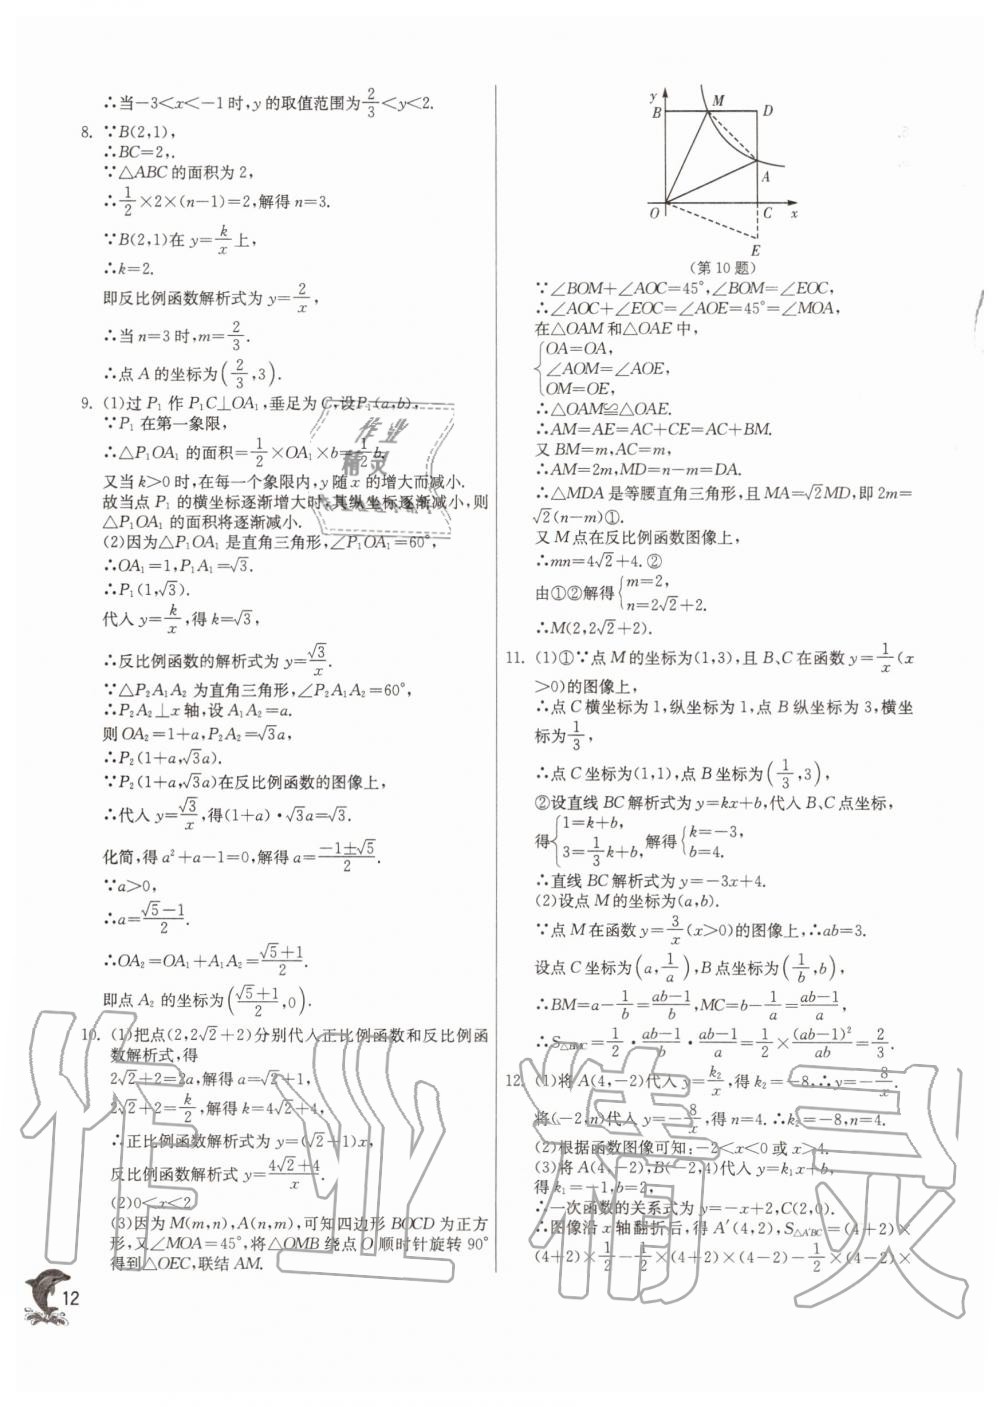 ∴当-3<x<-1时,y的取值范围为2/3<y<2.
8. ∵B(2,1),
∴BC=2,.
∵△ABC的面积为2,
∴1/2×2×(n-1)=2,解得n=3.
∵B(2,1)在y=k/x上,
∴k=2.
即反比例函数解析式为y=2/x,
∴当n=3时,m=2/3.
∴点A的坐标为(2/3,3).
9. (1)过P₁作P₁C⊥OA₁,垂足为C,设P₁(a,b),
∵P₁在第一象限,
∴△P₁OA₁的面积=1/2×OA₁×b=1/2b.
又当k>0时,在每一个象限内,y随x的增大而减小.
故当点P₁的横坐标逐渐增大时,其纵坐标逐渐减小,则
△P₁OA₁的面积将逐渐减小.
(2)因为△P₁OA₁是直角三角形,∠P₁OA₁=60°,
∴OA₁=1,P₁A₁=√3.
∴P₁(1,√3).
代入y=k/x,得k=√3,
∴反比例函数的解析式为y=√3/x.
∵△P₂A₁A₂为直角三角形,∠P₂A₁A₂=60°,
∴P₂A₂⊥x轴,设A₁A₂=a.
则OA₂=1+a,P₂A₂=√3a,
∴P₂(1+a,√3a).
∵P₂(1+a,√3a)在反比例函数的图像上,
∴代入y=√3/x,得(1+a)·√3a=√3.
化简,得a²+a-1=0,解得a=(-1±√5)/2.
∵a>0,
∴a=(√5-1)/2.
∴OA₂=OA₁+A₁A₂=(√5+1)/2.
即点A₂的坐标为((√5+1)/2,0).
10. (1)把点(2,2√2+2)分别代入正比例函数和反比例函
数解析式,得
2√2+2=2a,解得a=√2+1,
2√2+2=k/2,解得k=4√2+4,
∴正比例函数解析式为y=(√2+1)x,
反比例函数解析式y=(4√2+4)/x.
(2)0<x<2
(3)因为M(m,n),A(n,m),可知四边形BOCD为正方
形,又∠MOA=45°,将△OMB绕点O顺时针旋转90°
得到△OEC,联结AM.
12
y
B
M
D
A
O
C
x
E
(第10题)
∵∠BOM+∠AOC=45°,∠BOM=∠EOC,
∴∠AOC+∠EOC=∠AOE=45°=∠MOA,
在△OAM和△OAE中,
{OA=OA,
∠AOM=∠AOE,
OM=OE,
∴△OAM≌△OAE.
∴AM=AE=AC+CE=AC+BM.
又BM=m,AC=m.
∴AM=2m,MD=n-m=DA.
∴△MDA是等腰直角三角形,且MA=√2MD,即2m=
√2(n-m)①.
又M点在反比例函数图像上,
∴mn=4√2+4.②
由①②解得{m=2,
n=2√2+2.
∴M(2,2√2+2).
11. (1)①∵点M的坐标为(1,3),且B、C在函数y=1/x(x
>0)的图像上,
∴点C横坐标为1,纵坐标为1,点B纵坐标为3,横坐
标为1/3,
∴点C坐标为(1,1),点B坐标为(1/3,3),
②设直线BC解析式为y=kx+b,代入B、C点坐标,
得{1=k+b,
3=1/3k+b, 解得{k=-3,
b=4.
∴直线BC解析式为y=-3x+4.
(2)设点M的坐标为(a,b).
∵点M在函数y=3/x(x>0)的图像上,∴ab=3.
设点C坐标为(a,1/a),B点坐标为(1/b,b),
∴BM=a-1/b=(ab-1)/b,MC=b-1/a=(ab-1)/a,
∴S△BMC=1/2·(ab-1)/b·(ab-1)/a=1/2×(ab-1)²/ab=2/3.
12. (1)将A(4,-2)代入y=k₂/x,得k₂=-8,∴y=-8/x.
将(-2,n)代入y=-8/x,得n=4.∴k₂=-8,n=4.
(2)根据函数图像可知:-2<x<0或x>4.
(3)将A(4,-2),B(-2,4)代入y=k₁x+b,
得k₁=-1,b=2,
∴一次函数的关系式为y=-x+2,C(2,0).
∴图像沿x轴翻折后,得A′(4,2),S△A′BC=(4+2)×
(4+2)×1/2-1/2×(4+2)×(4-2)-1/2×(4-2)×
作业精灵
作业
精灵